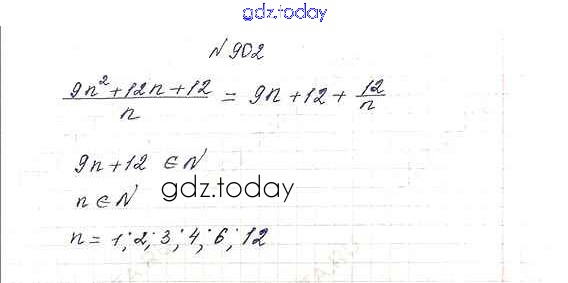 gdz.today
№ 902
(9n² + 12n + 12)/n = 9n + 12 + 12/n
9n + 12 ∈ N
n ∈ N
gdz.today
n = 1; 2; 3; 4; 6; 12